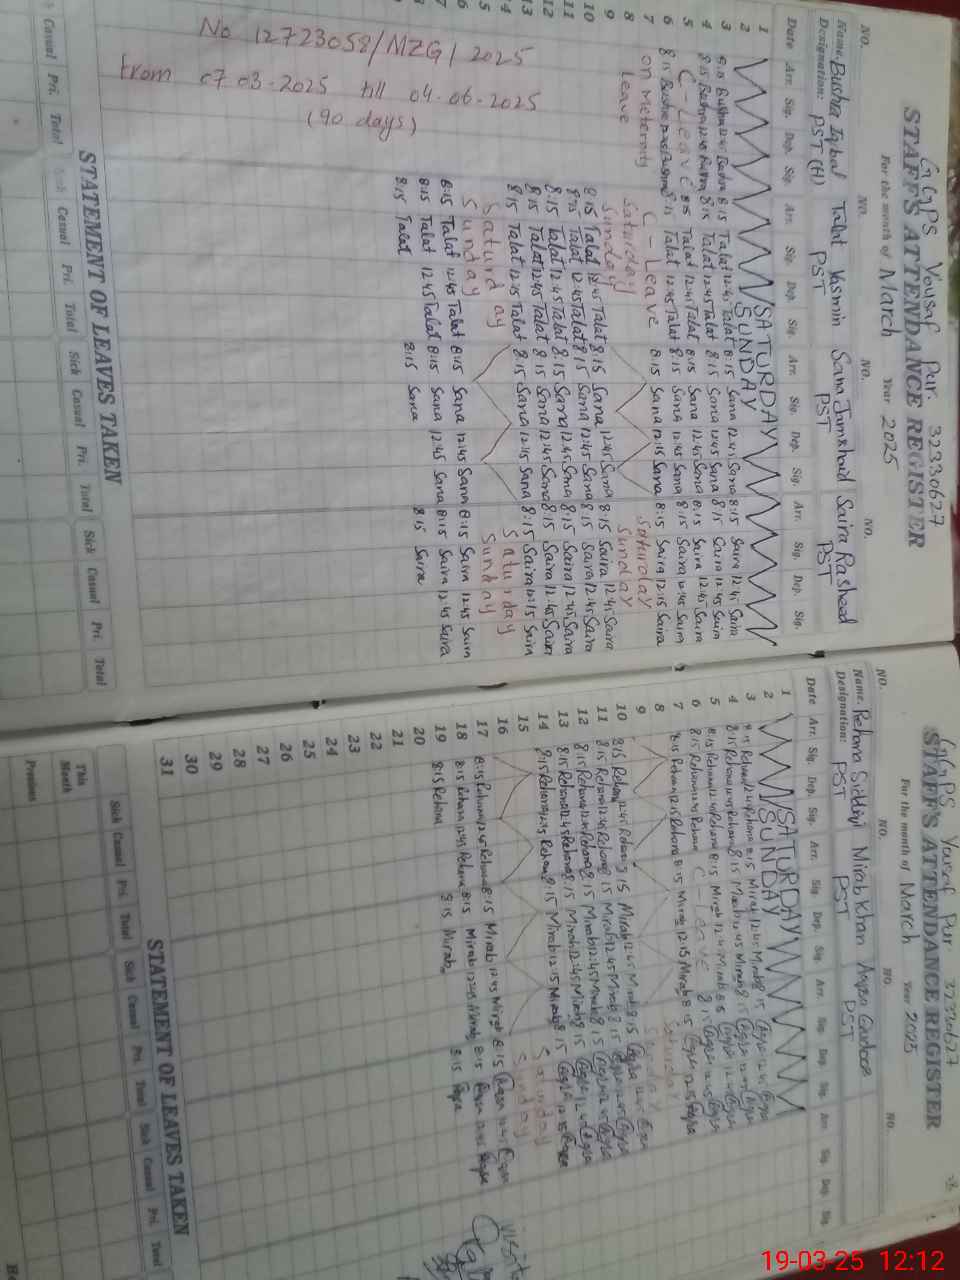 GGPS Yousaf Pur. 32330627
STAFF'S ATTENDANCE REGISTER
For the month of March Year 2025
NO. NO. NO. NO.
Name: Bushra Iqbal Talat Yasmin Sana Jamshaid Saira Rasheed
Designation: PST (H) PST PST PST
Date Arr. Sig. Dep. Sig. Arr. Sig. Dep. Sig. Arr. Sig. Dep. Sig. Arr. Sig. Dep. Sig.
1 SATURDAY
2 SUNDAY
3 8:15 Bushra 12:45 Bushra 8:15 Talat 12:45 Talat 8:15 Sana 12:45 Sana 8:15 Saira 12:45 Saira
4 8:15 Bushra 12:45 Bushra 8:15 Talat 12:45 Talat 8:15 Sana 12:45 Sana 8:15 Saira 12:45 Saira
5 C-Leave 8:15 Talat 12:45 Talat 8:15 Sana 12:45 Sana 8:15 Saira 12:45 Saira
6 8:15 Bushra 12:45 Bushra 8:15 Talat 12:45 Talat 8:15 Sana 12:45 Sana 8:15 Saira 12:45 Saira
7 on meternity C-Leave 8:15 Sana 12:15 Sana 8:15 Saira 12:15 Saira
8 leave Saturday Saturday
9 Sunday Sunday
10 8:15 Talat 12:45 Talat 8:15 Sana 12:45 Sana 8:15 Saira 12:45 Saira
11 8:15 Talat 12:45 Talat 8:15 Sana 12:45 Sana 8:15 Saira 12:45 Saira
12 8:15 Talat 12:45 Talat 8:15 Sana 12:45 Sana 8:15 Saira 12:45 Saira
13 8:15 Talat 12:45 Talat 8:15 Sana 12:45 Sana 8:15 Saira 12:45 Saira
14 8:15 Talat 12:15 Talat 8:15 Sana 12:15 Sana 8:15 Saira 12:15 Saira
15 Saturday Saturday
16 Sunday Sunday
8:15 Talat 12:45 Talat 8:15 Sana 12:45 Sana 8:15 Saira 12:45 Saira
8:15 Talat 12:45 Talat 8:15 Sana 12:45 Sana 8:15 Saira 12:45 Saira
8:15 Talat 8:15 Sana 8:15 Saira
No 12723058/MZG/2025
from 07.03-2025 till 04.06.2025
(90 days)
STATEMENT OF LEAVES TAKEN
Sick Casual Pri. Total Sick Casual Pri. Total Sick Casual Pri. Total
Casual Pri. Total
GGPS Yousaf Pur 32330627
STAFF'S ATTENDANCE REGISTER
For the month of March Year 2025
NO. NO. NO. NO.
Name. Rehana Siddiqi Mirab Khan Aqsa
Designation: PST PST PST
Date Arr. Sig. Dep. Sig. Arr. Sig. Dep. Sig. Arr. Sig. Dep. Sig. Arr. Sig. Dep. Sig.
1 SATURDAY
2 SUNDAY
3 8:15 Rehana 12:45 Rehana 8:15 Mirab 12:45 Mirab 8:15 Aqsa 12:45 Aqsa
4 8:15 Rehana 12:45 Rehana 8:15 Mirab 12:45 Mirab 8:15 Aqsa 12:45 Aqsa
5 8:15 Rehana 12:45 Rehana 8:15 Mirab 12:45 Mirab 8:15 Aqsa 12:45 Aqsa
6 8:15 Rehana 12:45 Rehana C-Leave 8:15 Aqsa 12:45 Aqsa
7 8:15 Rehana 12:15 Rehana 8:15 Mirab 12:15 Mirab 8:15 Aqsa 12:15 Aqsa
8 Saturday
9 Sunday
10 8:15 Rehana 12:45 Rehana 8:15 Mirab 12:45 Mirab 8:15 Aqsa 12:45 Aqsa
11 8:15 Rehana 12:45 Rehana 8:15 Mirab 12:45 Mirab 8:15 Aqsa 12:45 Aqsa
12 8:15 Rehana 12:45 Rehana 8:15 Mirab 12:45 Mirab 8:15 Aqsa 12:45 Aqsa
13 8:15 Rehana 12:45 Rehana 8:15 Mirab 12:45 Mirab 8:15 Aqsa 12:45 Aqsa
14 8:15 Rehana 12:15 Rehana 8:15 Mirab 12:15 Mirab 8:15 Aqsa 12:15 Aqsa
15 Saturday
16 Sunday
17 8:15 Rehana 12:45 Rehana 8:15 Mirab 12:45 Mirab 8:15 Aqsa 12:45 Aqsa
18 8:15 Rehana 12:45 Rehana 8:15 Mirab 12:45 Mirab 8:15 Aqsa 12:45 Aqsa
19 8:15 Rehana 8:15 Mirab 8:15 Aqsa
20
21
22
23
24
25
26
27
28
29
30
31
STATEMENT OF LEAVES TAKEN
Sick Casual Pri. Total Sick Casual Pri. Total Sick Casual Pri. Total
This Month
Previous
19-03-25 12:12